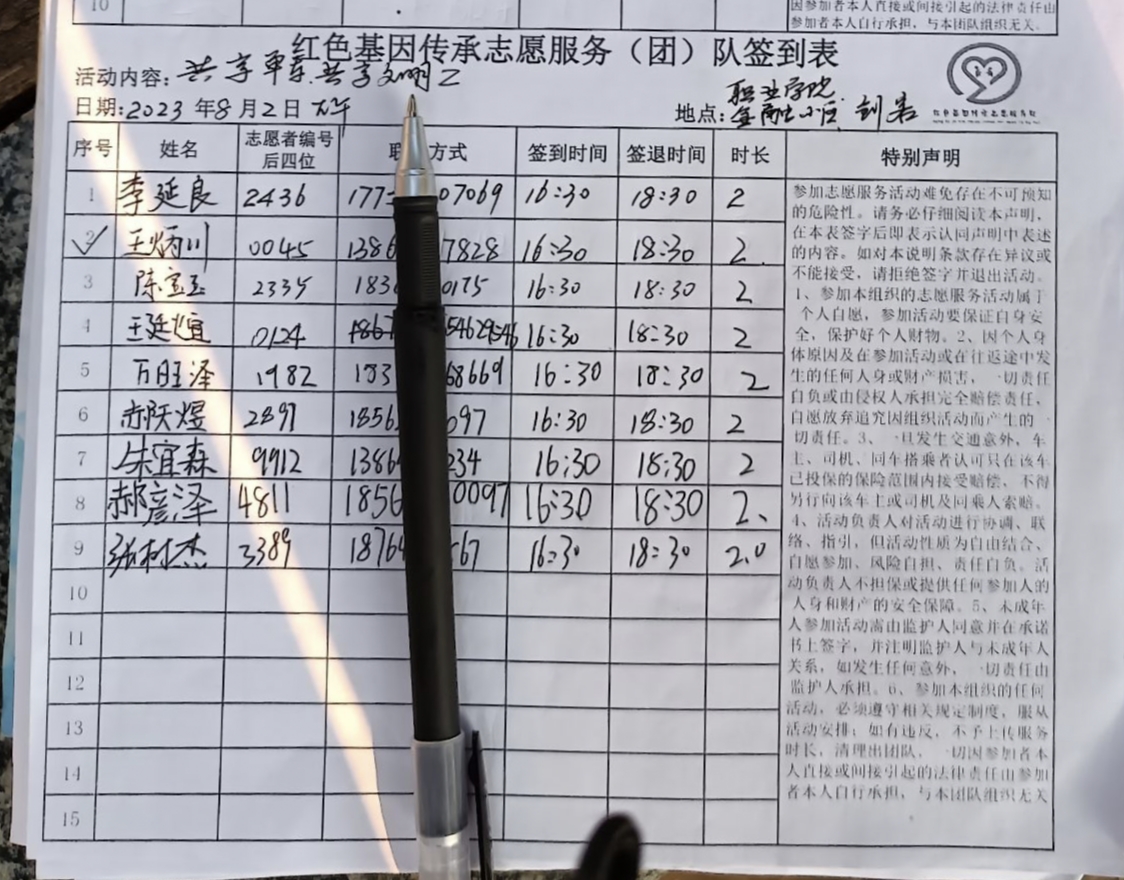 10
因参加者本人直接或间接引起的法律责任由
参加者本人自行承担，与本团队组织无关。
红色基因传承志愿服务（团）队签到表
活动内容: 共享单车.共享文明
日期:2023 年8月2日 下午
职业学院
地点:
序号 姓名 志愿者编号后四位 联 方式 签到时间 签退时间 时长 特别声明
1 李延良 2436 177 07069 16:30 18:30 2
2 王炳川 0045 1386 7828 16:30 18:30 2.
3 陈宝玉 2335 183 0175 16:30 18:30 2
4 王延煊 0124 1867 16:30 18:30 2
5 万旺泽 1982 183 68669 16:30 18:30 2
6 郝 煜 2897 1856 097 16:30 18:30 2
7 朱宜森 9912 1386 234 16:30 18:30 2
8 郝彦泽 4811 1856 0097 16:30 18:30 2、
9 张树杰 3389 1876 567 16:30 18:30 2.0
10
11
12
13
14
15
参加志愿服务活动难免存在不可预知
的危险性。请务必仔细阅读本声明，
在本表签字后即表示认同声明中表述
的内容。如对本说明条款存在异议或
不能接受，请拒绝签字并退出活动。
1、参加本组织的志愿服务活动属于
个人自愿，参加活动要保证自身安
全，保护好个人财物。2、因个人身
体原因及在参加活动或在往返途中发
生的任何人身或财产损害，一切责任
自负或由侵权人承担完全赔偿责任，
自愿放弃追究因组织活动而产生的一
切责任。3、一旦发生交通意外，车
主、司机、同车搭乘者认可只在该车
已投保的保险范围内接受赔偿，不得
另行向该车主或司机及同乘人索赔。
4、活动负责人对活动进行协调、联
络、指引，但活动性质为自由结合、
自愿参加、风险自担、责任自负。活
动负责人不担保或提供任何参加人的
人身和财产的安全保障。5、未成年
人参加活动需由监护人同意并在承诺
书上签字，并注明监护人与未成年人
关系，如发生任何意外，一切责任由
监护人承担。6、参加本组织的任何
活动，必须遵守相关规定制度，服从
活动安排；如有违反，不予上传服务
时长，清理出团队，一切因参加者本
人直接或间接引起的法律责任由参加
者本人自行承担，与本团队组织无关